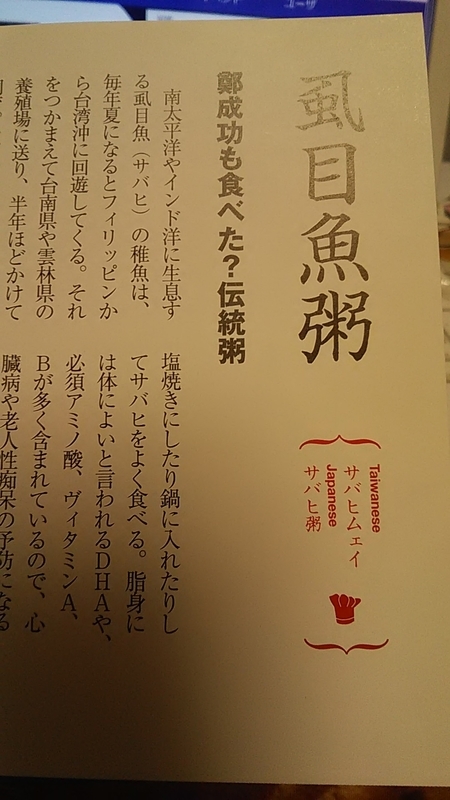 虱目魚粥
Taiwanese
サバヒムェイ
Japanese
サバヒ粥
鄭成功も食べた？伝統粥
南太平洋やインド洋に生息す
る虱目魚（サバヒ）の稚魚は、
毎年夏になるとフィリッピンか
ら台湾沖に回遊してくる。それ
をつかまえて台南県や雲林県の
養殖場に送り、半年ほどかけて
塩焼きにしたり鍋に入れたりし
てサバヒをよく食べる。脂身に
は体によいと言われるDHAや、
必須アミノ酸、ヴィタミンA、
Bが多く含まれているので、心
臓病や老人性痴呆の予防になる
ユーザ